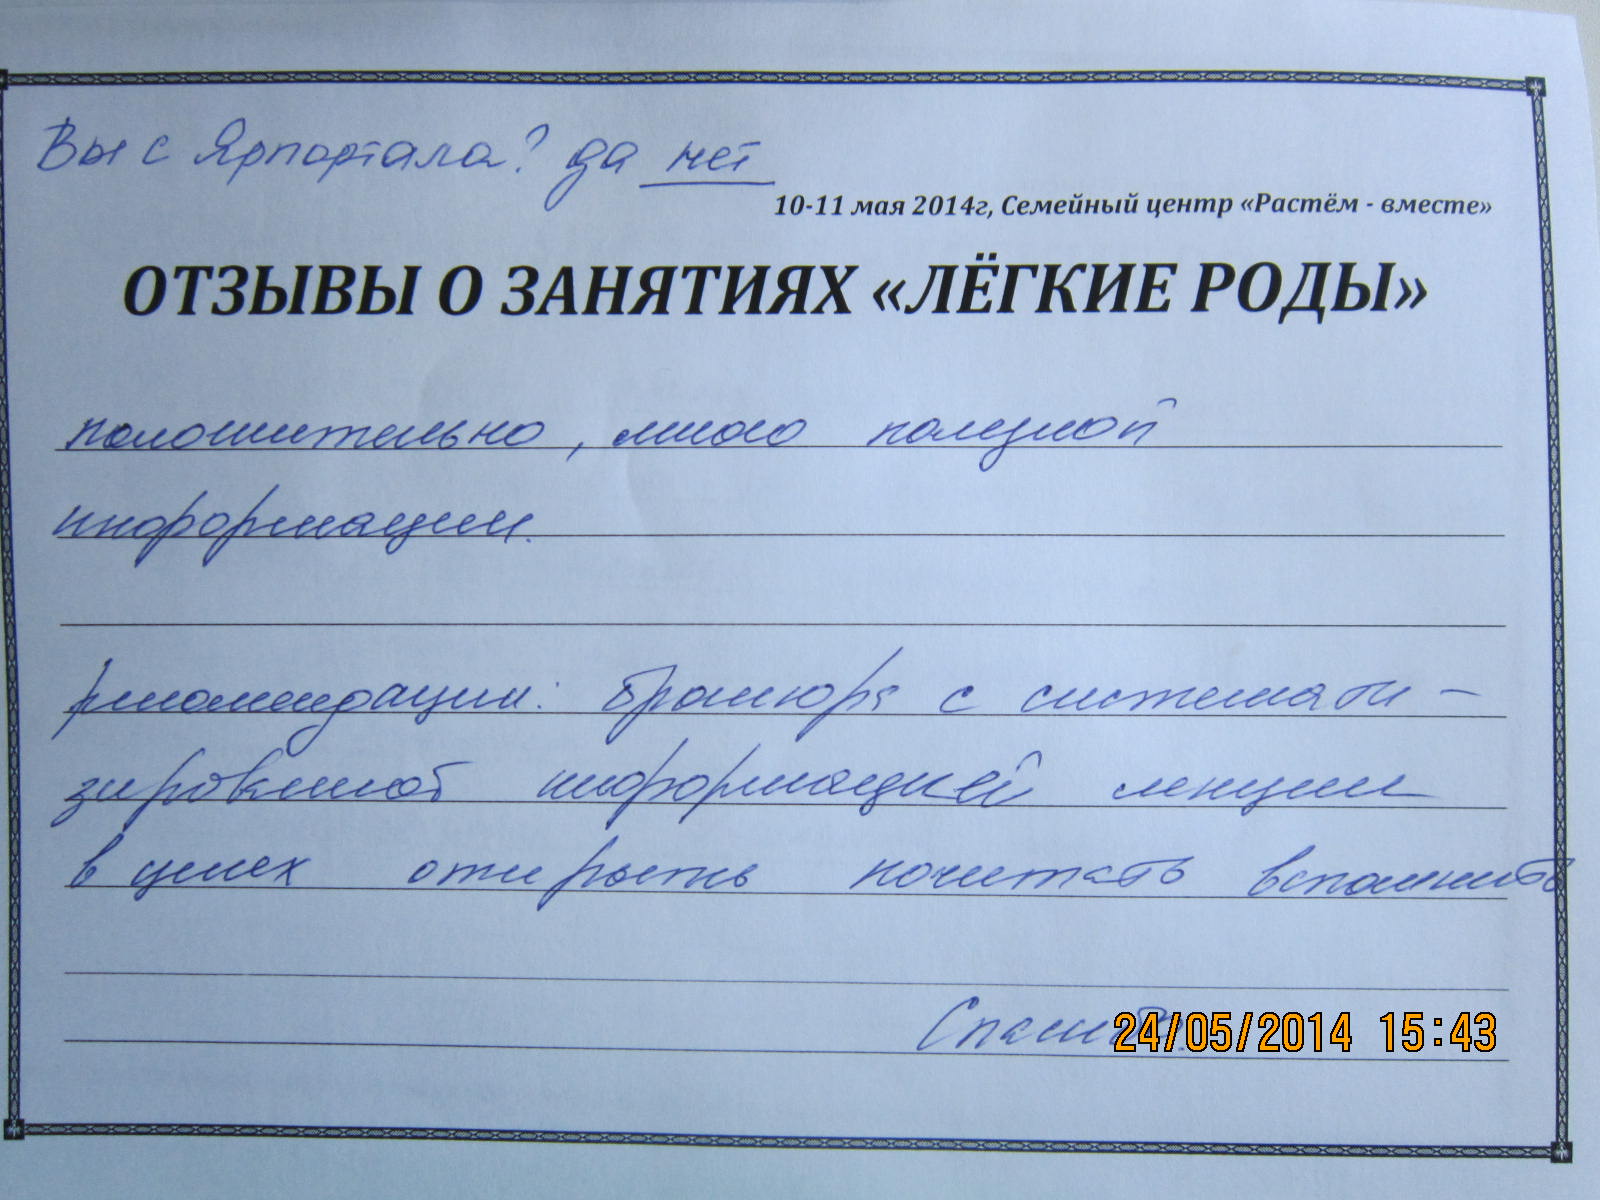 Вы с Ярпортала? да нет
10-11 мая 2014г, Семейный центр «Растём - вместе»
ОТЗЫВЫ О ЗАНЯТИЯХ «ЛЁГКИЕ РОДЫ»
положительно, много полезной
информации.
рекомендации: брошюра с системати-
зированной информацией лекции
в целях открыть почитать вспомнить
Спасибо.
24/05/2014 15:43